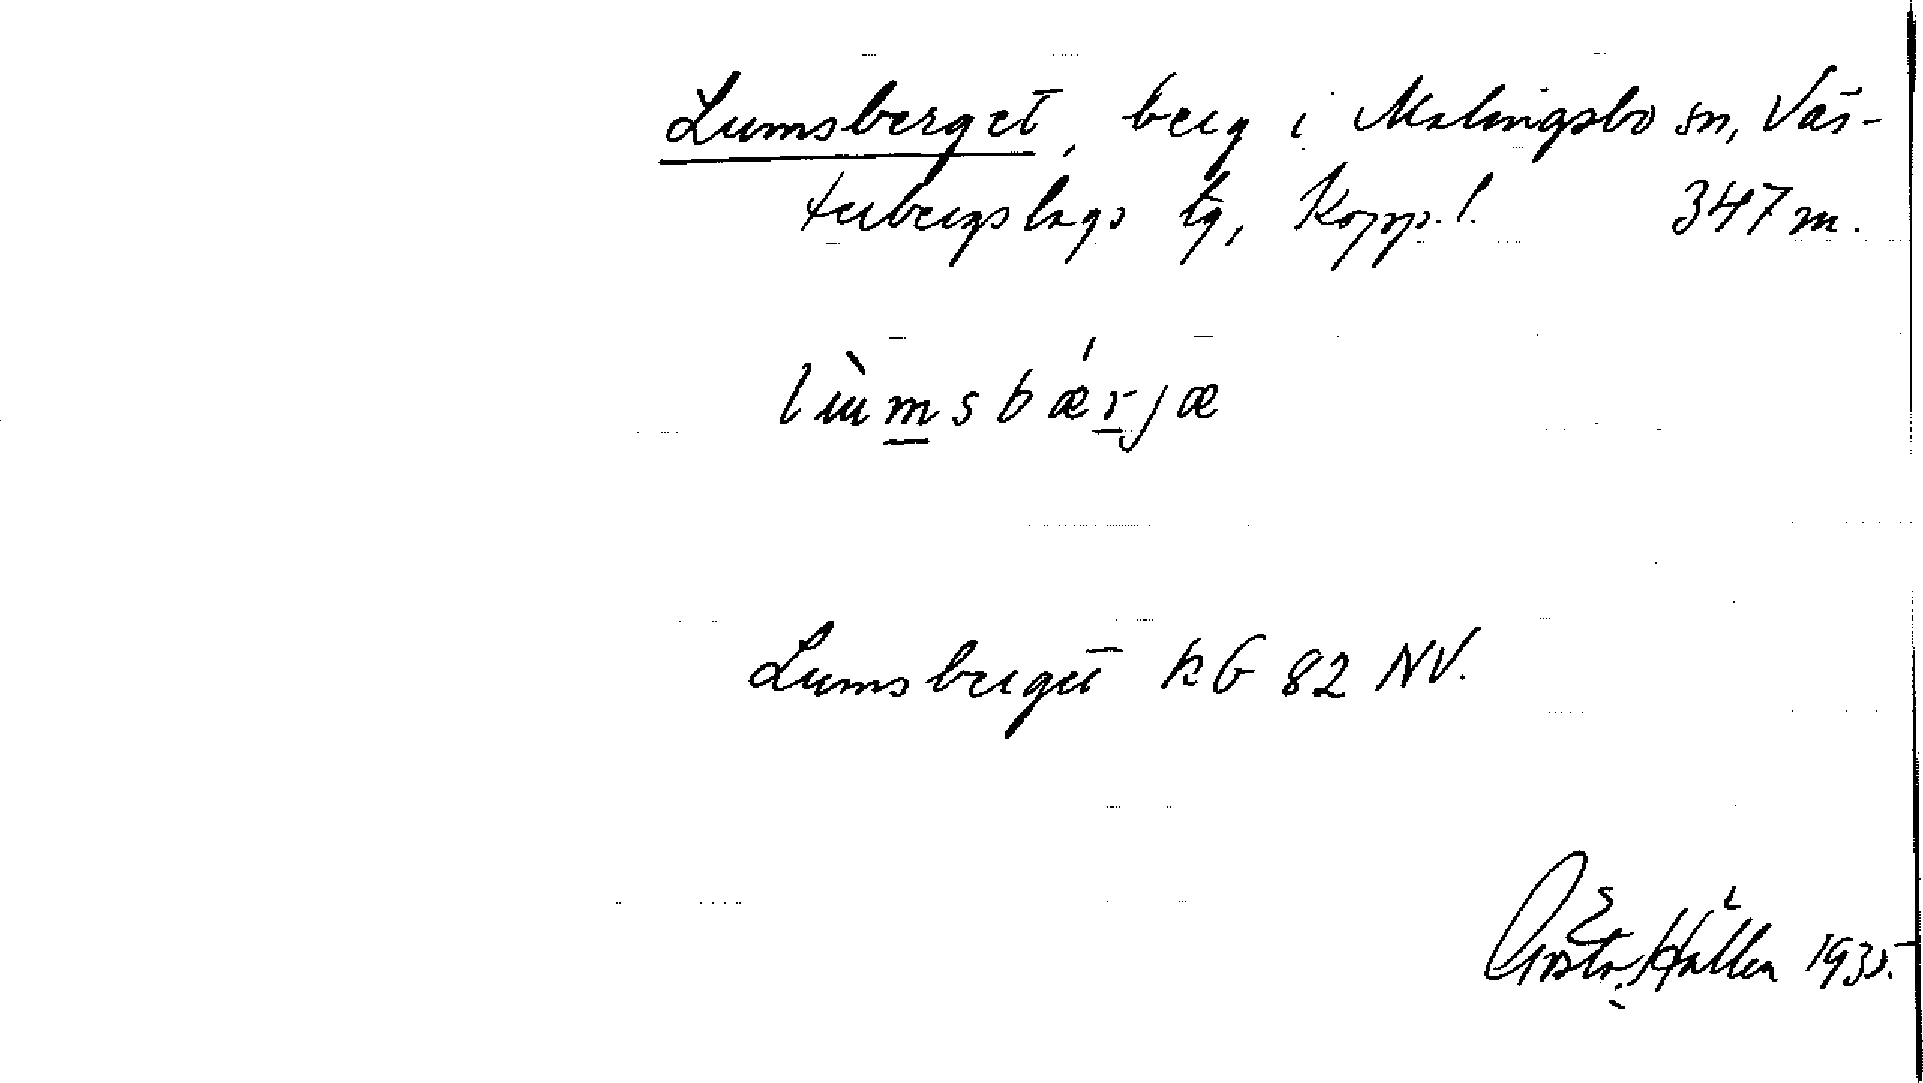 Lumsberget, berg i Malingsbo sn, Väs-
terbergslags tg, Kopp. l. 347 m.
lùmsbǽrjæ
Lumsberget kG 82 NV.
Gösta Hállen 1935.